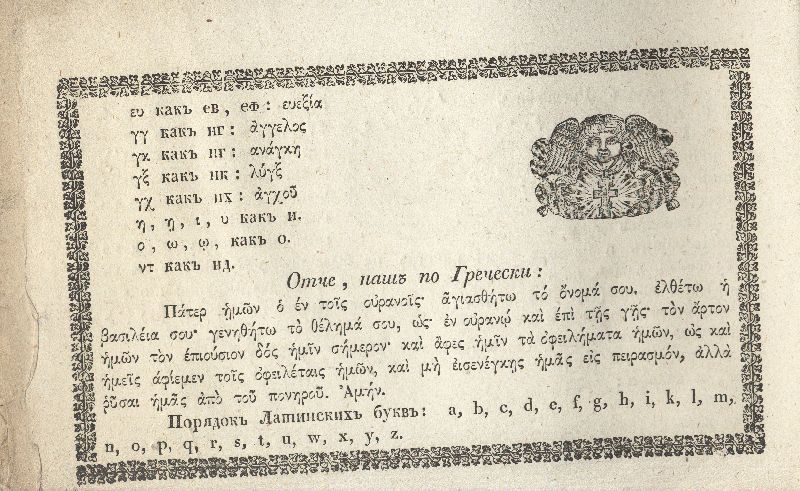 ευ какъ ев, еф: ευεξία
γγ какъ нг: ἀγγελος
γκ какъ нг: ανάγκη
γξ какъ нк: λύγξ
γχ какъ нх: ἀγχοῦ
η, ῃ, ι, υ какъ и.
ο, ω, ῳ, какъ о.
ντ какъ нд.
Отче, нашъ по Гречески:
Πάτερ ἡμῶν ὁ ἐν τοῖς οὐρανοῖς· ἁγιασθήτω τό ὄνομά σου, ἐλθέτω ἡ
βασιλεία σου· γενηθήτω τὸ θέλημά σου, ὡς· ἐν οὐρανῷ καὶ ἐπὶ τῆς γῆς· τὸν ἄρτον
ἡμῶν τὸν ἐπιούσιον δὸς ἡμῖν σήμερον· καὶ ἄφες ἡμῖν τὰ ὀφειλήματα ἡμῶν, ὡς καὶ
ἡμεῖς ἀφίεμεν τοῖς ὀφειλέταις ἡμῶν, καὶ μὴ εἰσενέγκῃς ἡμᾶς εἰς πειρασμόν, ἀλλὰ
ῥῦσαι ἡμᾶς ἀπὸ τοῦ πονηροῦ. Ἀμήν.
Порядокъ Латинскихъ буквъ: a, b, c, d, e, f, g, h, i, k, l, m,
n, o, p, q, r, s, t, u, w, x, y, z.